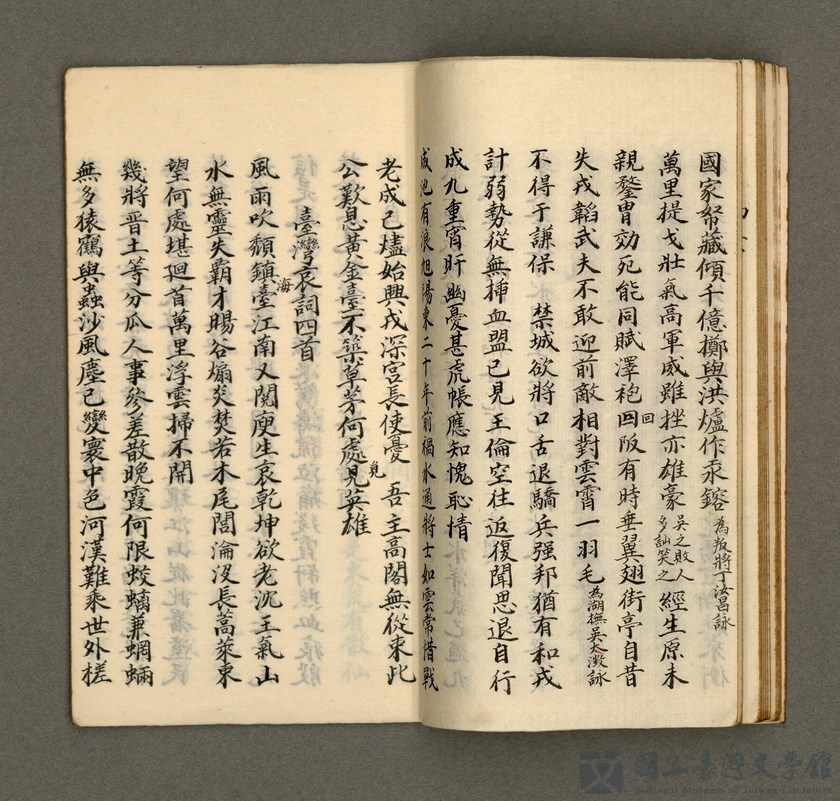 國家帑藏傾千億擲與洪爐作汞鎔為叛將丁汝昌詠
萬里提戈壯氣高軍威雖挫亦雄豪吳之敗人多訕笑之經生原未
親鍪胄効死能同賦澤袍回回阪有時垂翼翅街亭自昔
失戎韜武夫不敢迎前敵相對雲霄一羽毛為湖撫吳大澂詠
不得于謙保 禁城欲將口舌退驕兵强邦猶有和戎
計弱勢從無揷血盟已見王倫空往返復聞思退自行
成九重宵旰幽憂甚虎帳應知愧恥情
咸池有浪旭陽東二十年前禍水通將士如雲常惜戰
老成已燼始興戎深宮長使憂 吾主高閣無從東此
公歎息黃金臺不築草茅何處見覓英雄
臺灣哀詞四首
風雨吹頹鎮海臺江南又閱庾生哀乾坤欲老沉王氣山
水無靈失霸才暘谷煽炎焚若木尾閭淪沒長蒿萊東
望何處堪迴首萬里浮雲掃不開
幾將晋土等分瓜人事參差散晚霞何限蛟螭兼蝄蜽
無多猿鶴與蟲沙風塵已變寰中色河漢難乘世外槎
國立臺灣文學館
National Museum of Taiwan Literature